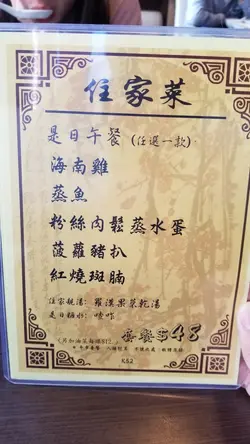 住家菜
是日午餐 (任選一款)
海南雞
蒸魚
粉絲肉鬆蒸水蛋
菠蘿豬扒
紅燒斑腩
住家靚湯: 羅漢果菜乾湯
是日糖水: 喳咋
套餐$48
K52